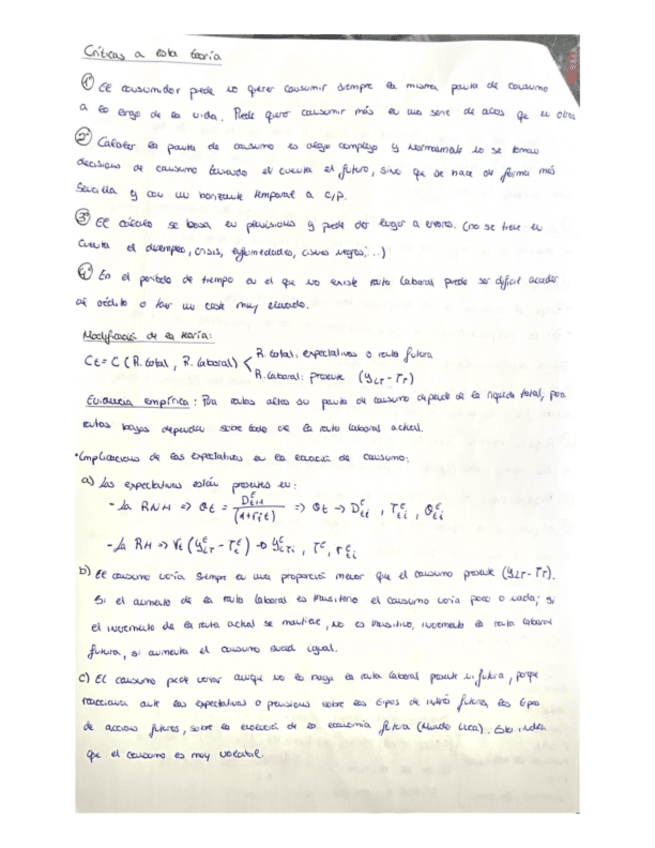 Críticas a esta teoría
1º El consumidor puede no querer consumir siempre la misma pauta de consumo
a lo largo de la vida. Puede querer consumir más en una serie de años que en otros
2º Calcular la pauta de consumo es algo complejo y normalmente no se toman
decisiones de consumo teniendo en cuenta el futuro, sino que se hace de forma más
sencilla y con un horizonte temporal a c/p.
3º El cálculo se basa en previsiones y puede dar lugar a errores. (no se tiene en
cuenta el desempleo, crisis, enfermedades, cisnes negros,...)
4º En el período de tiempo en el que no existe renta laboral puede ser difícil acceder
al crédito o tener un coste muy elevado.
Modificación de la teoría:
Ct = C (R. total, R. laboral) < R. total: expectativas o renta futura
R. laboral: presente (yLT - Tt)
Evidencia empírica: Para rentas altas su pauta de consumo depende de la riqueza total, para
rentas bajas dependen sobre todo de la renta laboral actual.
• Implicaciones de las expectativas en la ecuación de consumo:
a) Las expectativas están presentes en:
- La RNH => Qt = => Qt →
- La RH => Vt
b) El consumo varía siempre en una proporción menor que el consumo presente (yLT - Tt).
Si el aumento de la renta laboral es transitorio el consumo varía poco o nada; si
el incremento de la renta actual se mantiene, no es transitorio, incrementa la renta laboral
futura, si aumenta el consumo igual.
c) El consumo puede variar aunque no lo haga la renta laboral presente ni futura, porque
reacciona ante las expectativas o previsiones sobre los tipos de interés futuros, los tipos
de acciones futuros, sobre la evolución de la economía futura. Esto indica
que el consumo es muy volátil.